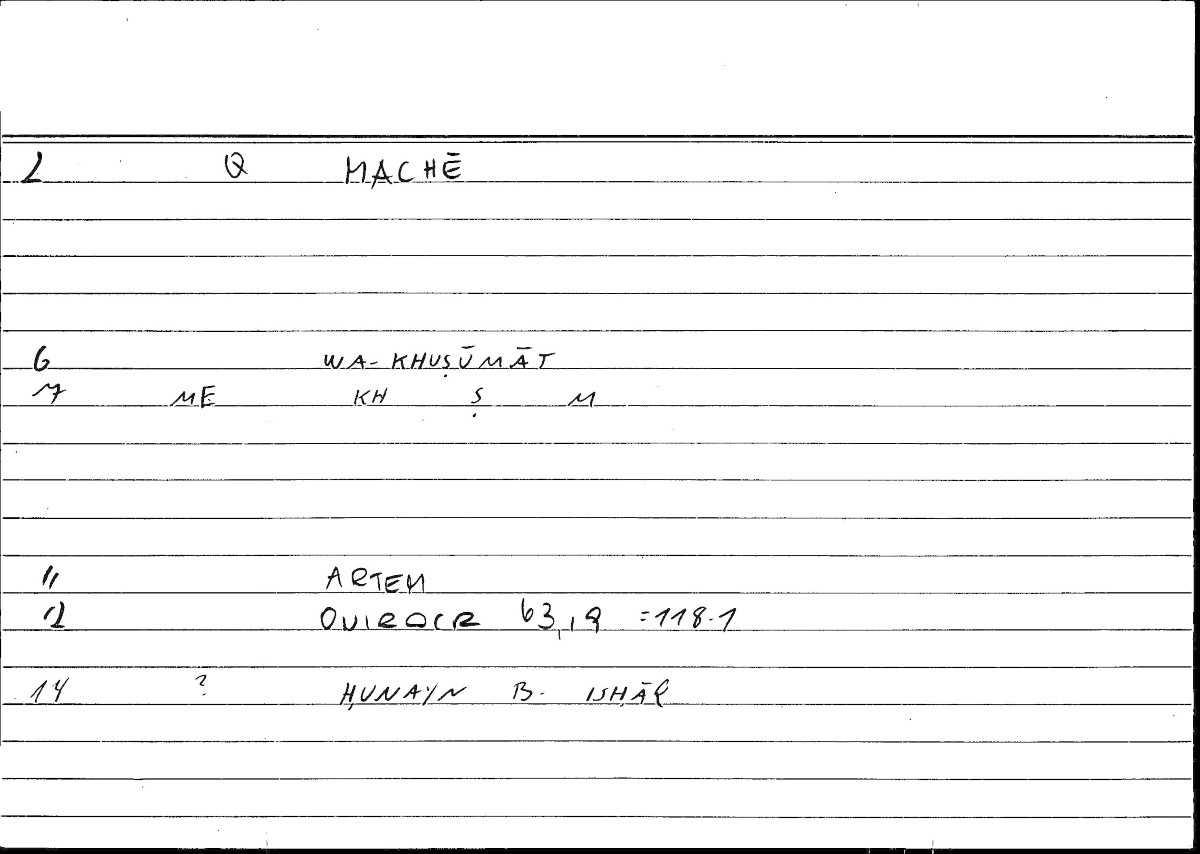 2 Q MACHĒ
6 WA-KHUṢŪMĀT
7 ME KH Ṣ M
11 ARTEM
12 OVIROCR 63,19 =118.1
14 ? ḤUNAYN B. ISḤĀQ